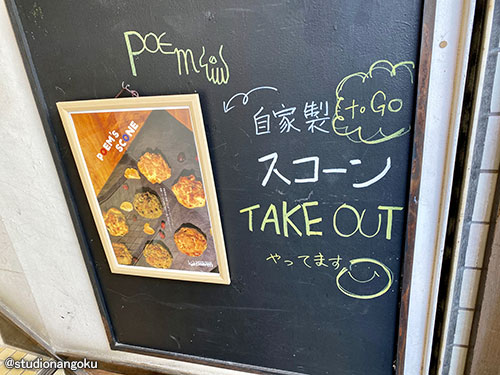 POEM
自家製
to GO
スコーン
TAKE OUT
やってます
POEM'S
SCONE
@studionangoku